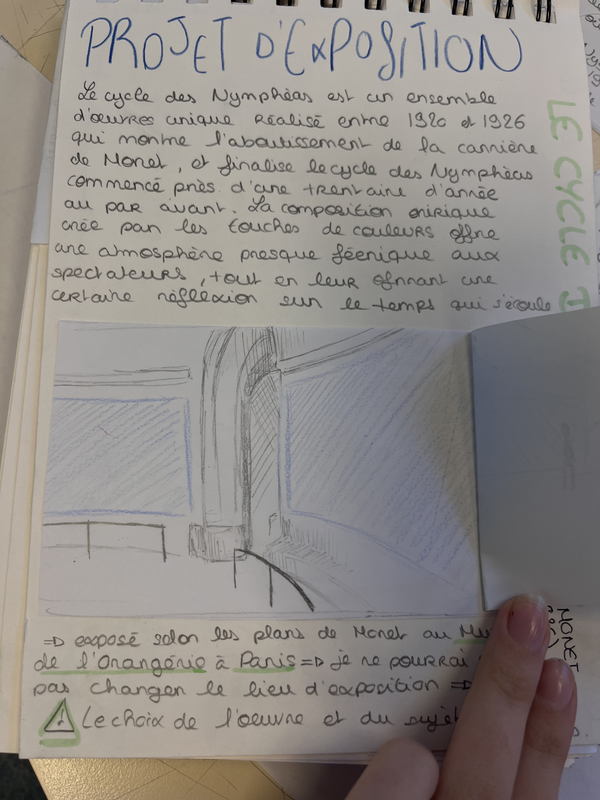 PROJET D'EXPOSITION
Le cycle des Nymphéas est un ensemble
d'œuvres unique réalisé entre 1920 et 1926
qui montre l'aboutissement de la carrière
de Monet, et finalise le cycle des Nymphéas
commencé près d'une trentaine d'année
au par avant. La composition onirique
crée par les touches de couleurs offre
une atmosphère presque féenique aux
spectateurs, tout en leur offrant une
certaine réflexion sur le temps qui s'écoule
LE CYCLE
=D exposé selon les plans de Monet au
de l'Orangerie à Paris =D je ne pourrai
pas changer le lieu d'exposition =D
! Le choix de l'oeuvre et du sujet
MONET